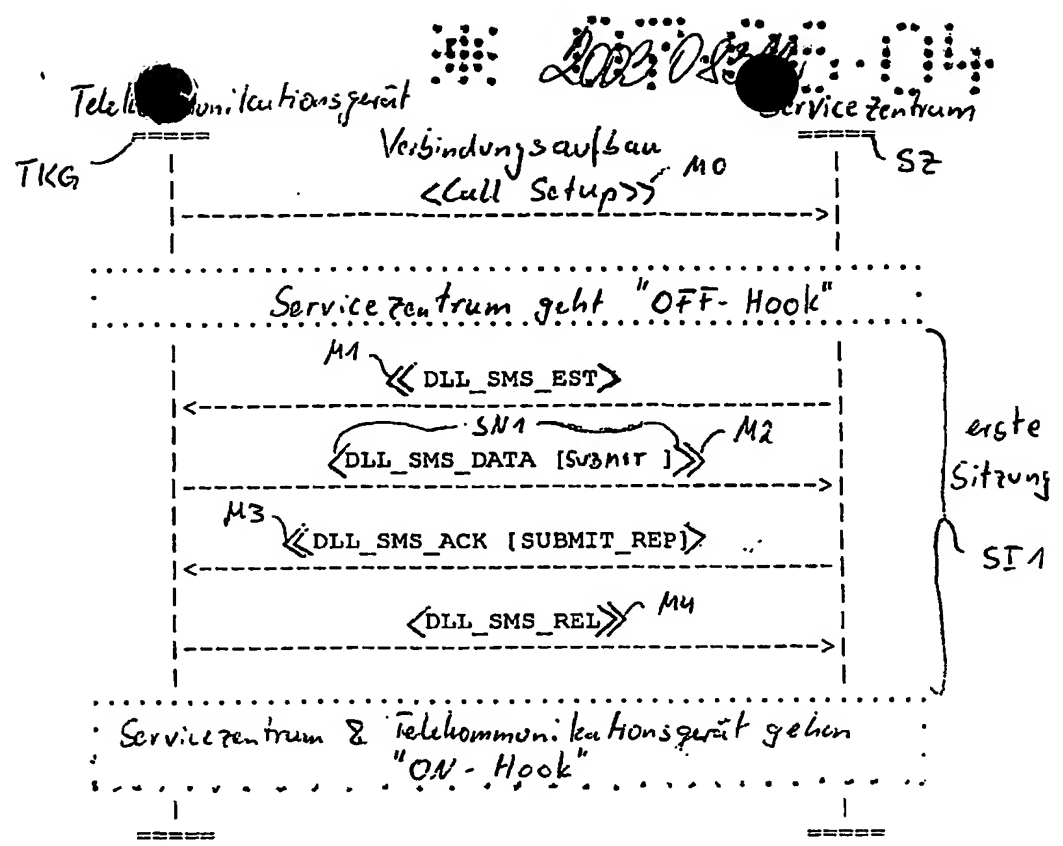 Telekommunikationsgerät
Servicezentrum
TKG
SZ
Verbindungsaufbau
<Call Setup>> M0
Servicezentrum geht "OFF-Hook"
M1
<<DLL_SMS_EST>
SN1
<DLL_SMS_DATA [SUBMIT ]>> M2
M3
<<DLL_SMS_ACK [SUBMIT_REP]>
<DLL_SMS_REL>> M4
erste
Sitzung
SI1
Servicezentrum & Telekommunikationsgerät gehen
"ON-Hook"